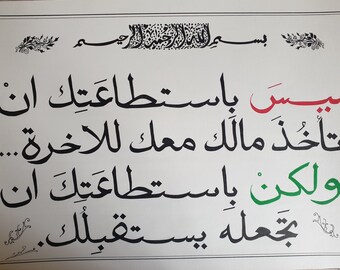 بسم الله الرحمن الرحيم
ليسَ بِاستطاعَتِك انْ
تأخُذَ مالَك معك للاخرة...
ولكنْ بِاستطاعَتِكَ ان
تَجعله يستقبلُك.